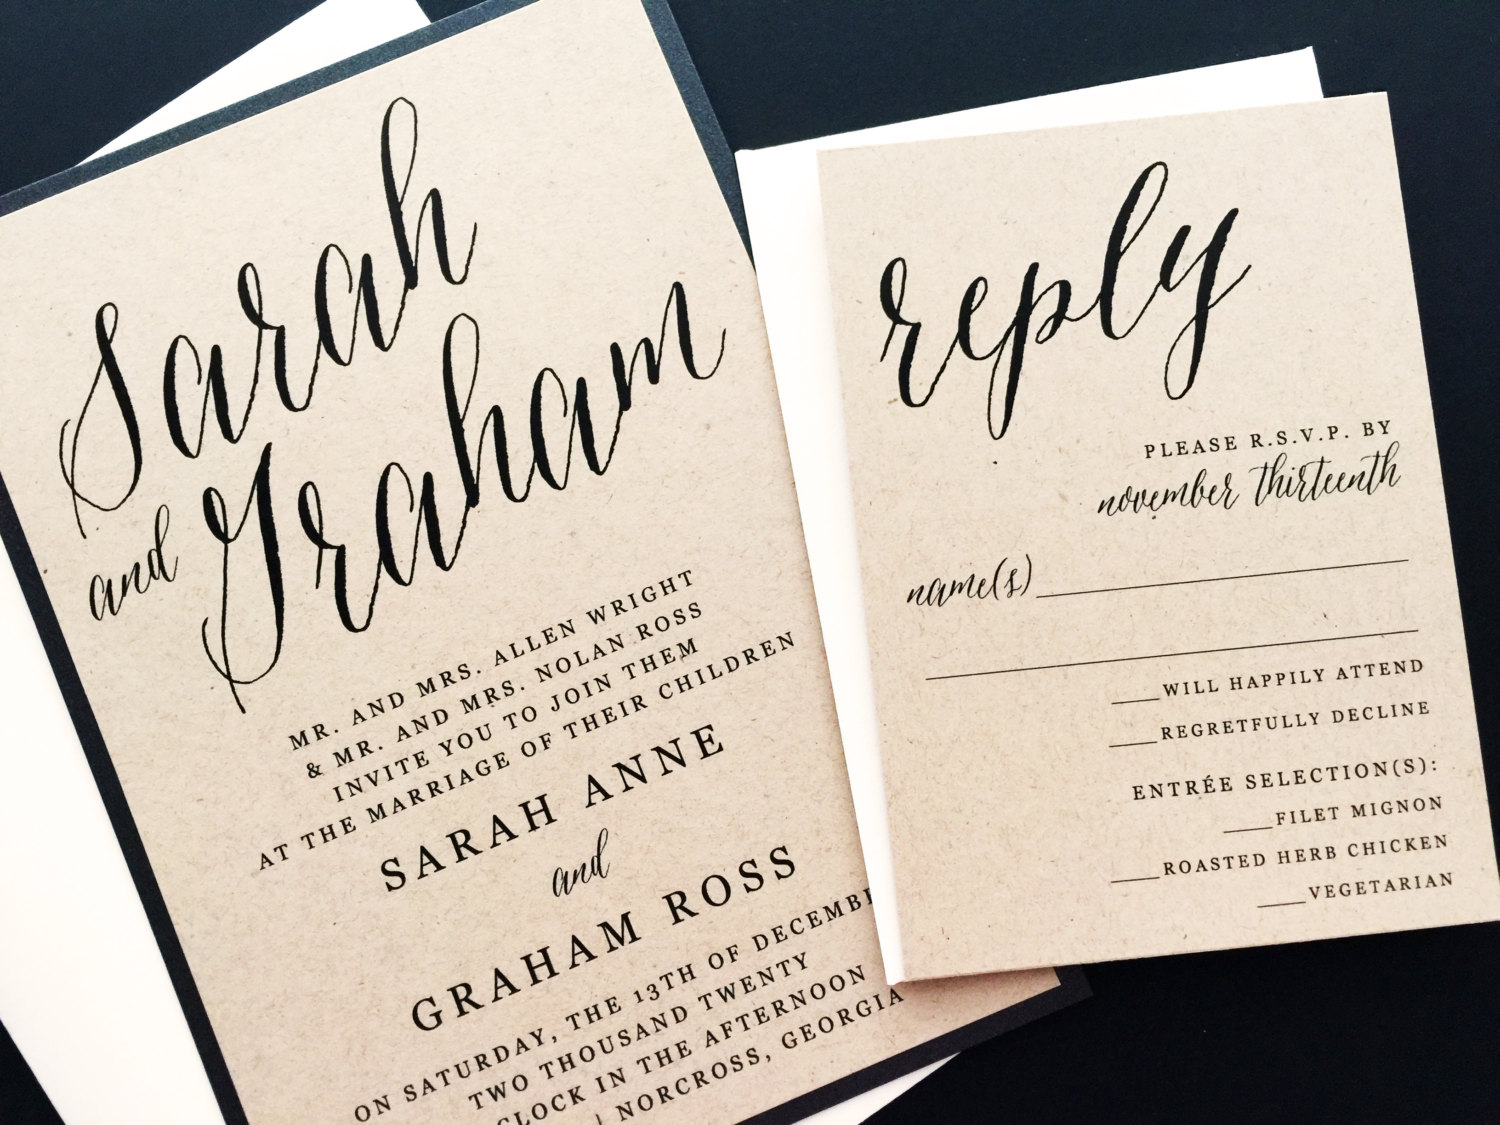 Sarah
and Graham
MR. AND MRS. ALLEN WRIGHT
& MR. AND MRS. NOLAN ROSS
INVITE YOU TO JOIN THEM
AT THE MARRIAGE OF THEIR CHILDREN
SARAH ANNE
and
GRAHAM ROSS
ON SATURDAY, THE 13TH OF DECEMBE
TWO THOUSAND TWENTY
CLOCK IN THE AFTERNOON
NORCROSS, GEORGIA
reply
PLEASE R.S.V.P. BY
november thirteenth
name(s)
WILL HAPPILY ATTEND
REGRETFULLY DECLINE
ENTRÉE SELECTION(S):
FILET MIGNON
ROASTED HERB CHICKEN
VEGETARIAN